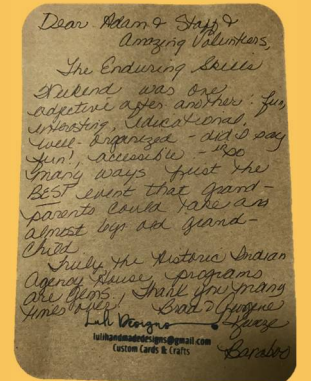 Dear Adam & Staff &
Amazing Volunteers,
The Enduring Skills
Weekend was one
adjective after another: fun,
interesting, educational,
well-organized - did I say
fun!, accessible - so
many ways just the
BEST event that grand-
parents could take an
almost 6 yr old grand-
child
Truly the Historic Indian
Agency House programs
are gems! Thank you many
times over! Brad &
Luli Designs
lulihandmadedesigns@gmail.com
Custom Cards & Crafts
Baraboo